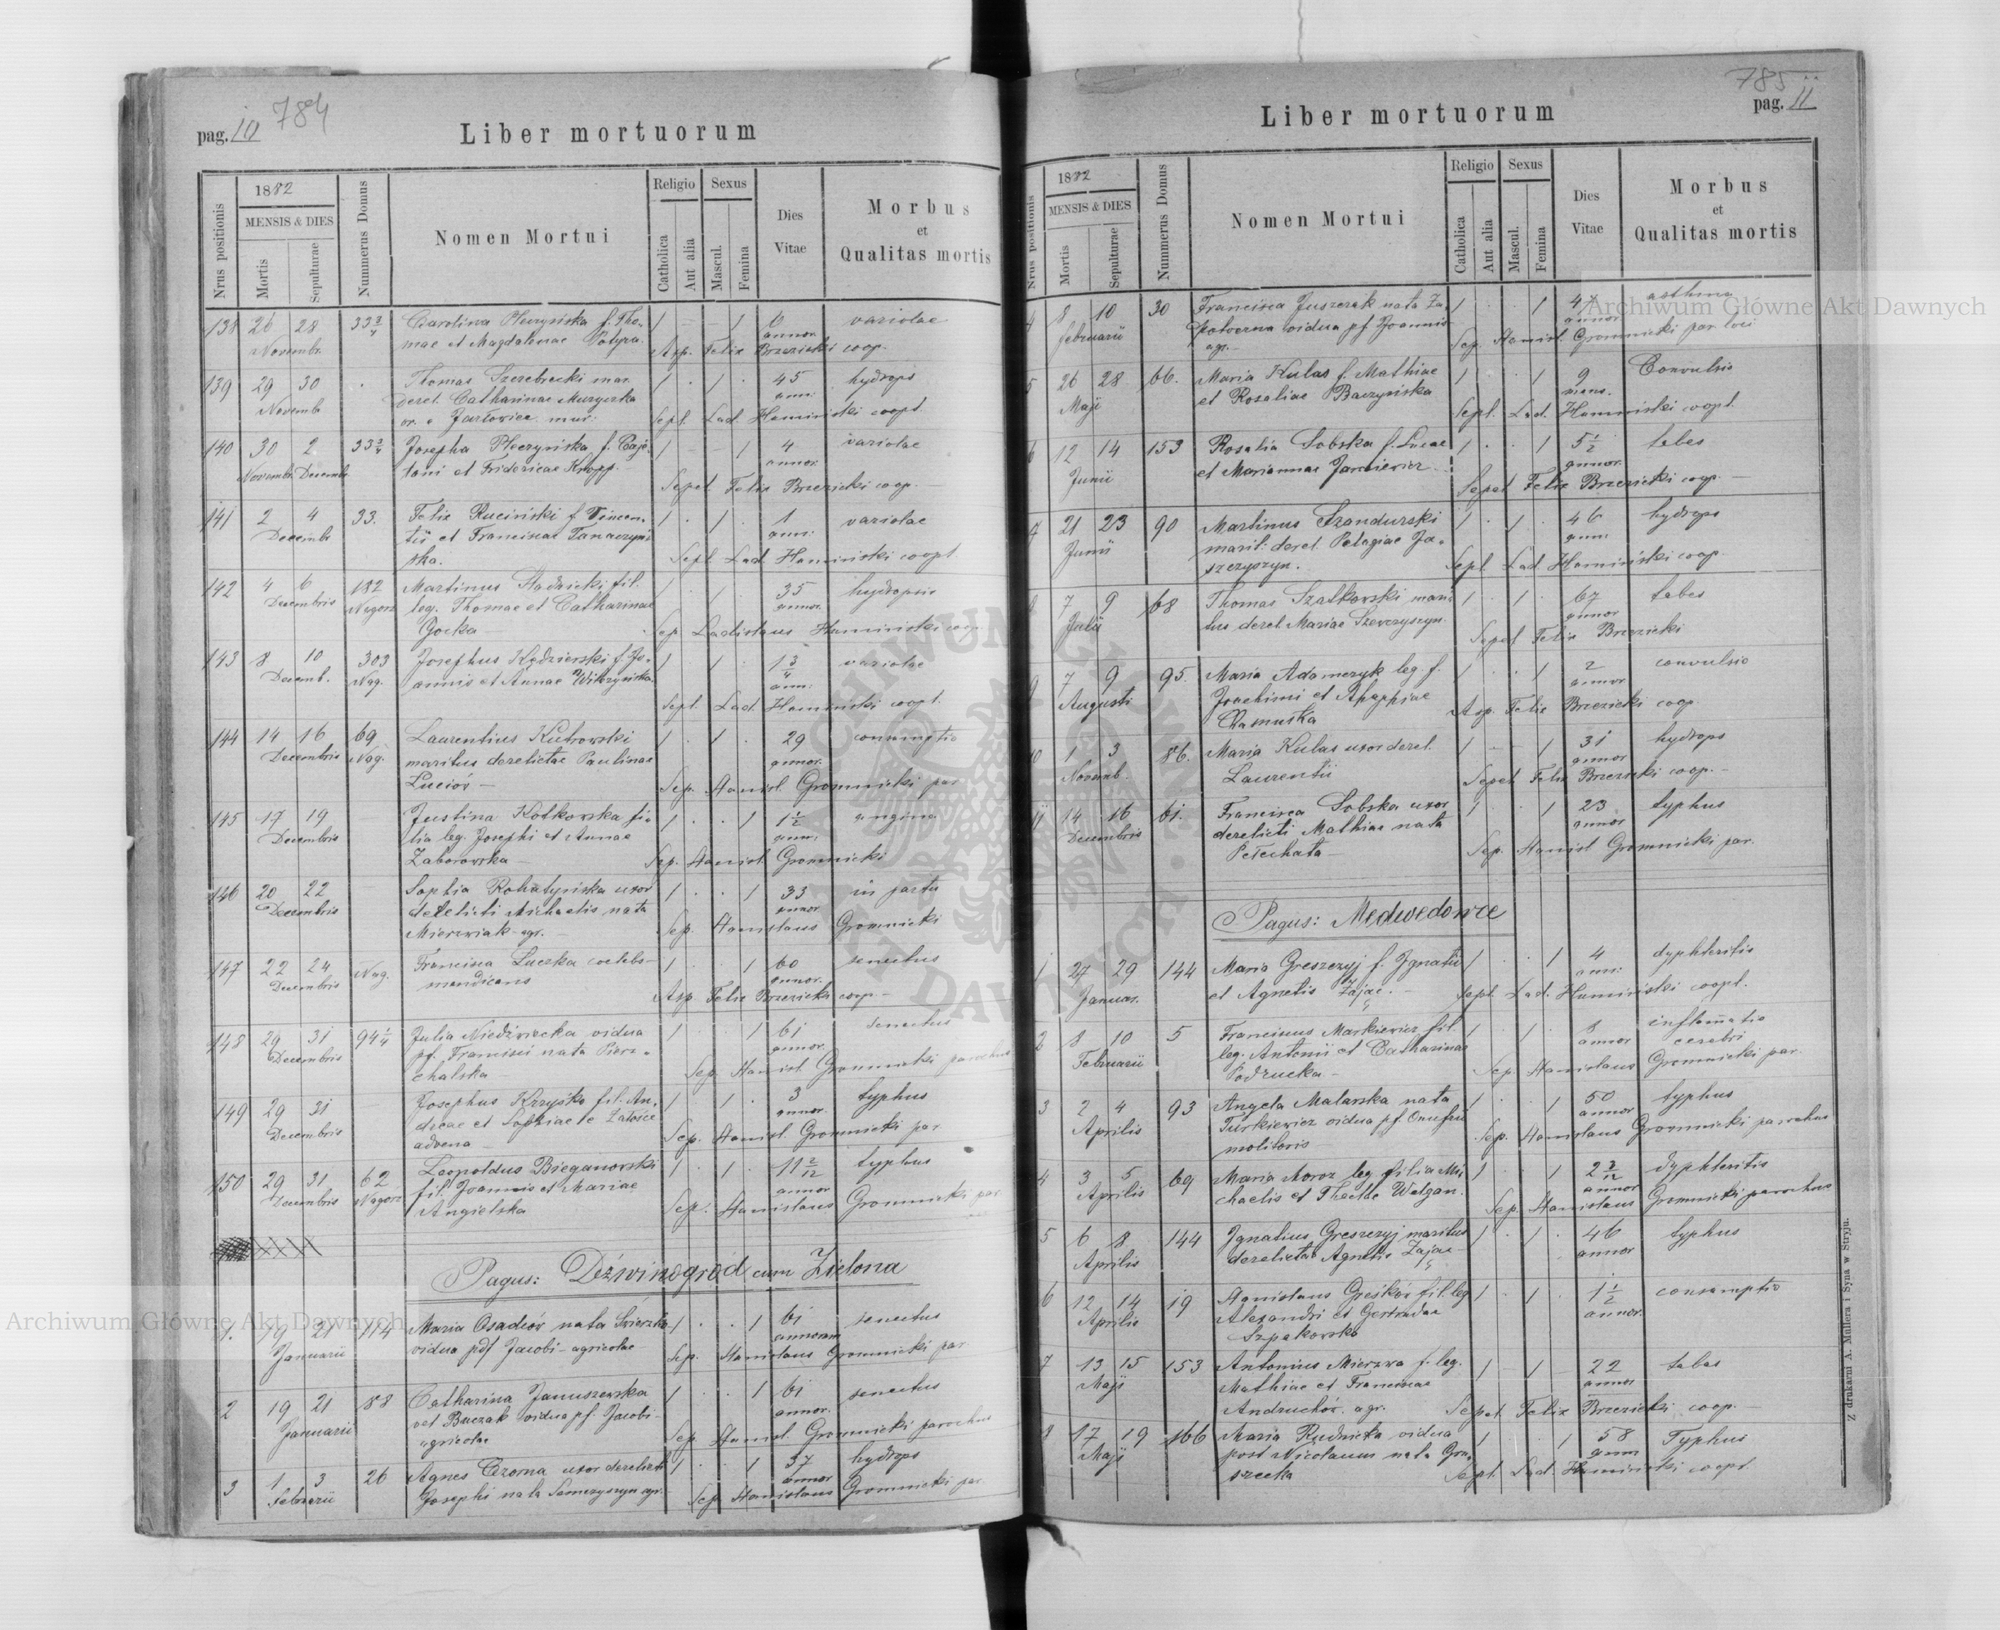 784
pag. 10
Liber mortuorum
Nrus positionis
1882
MENSIS & DIES
Mortis
Sepulturae
Nummerus Domus
Nomen Mortui
Religio
Catholica
Aut alia
Sexus
Mascul.
Femina
Dies
Vitae
Morbus
et
Qualitas mortis
138 26 28 33 3/4 Carolina f. Tho- 1 - - 1 6 variolae
Novembr. mae et Magdalenae annor.
Asp. Felix Brzezicki coop.
139 29 30 Thomas mar. 1 1 45 hydrops
Novemb. derel. Catharinae ann.
Sepl. Lad. Hamiński coopt.
140 30 2 33 3/4 Josepha f. Caje- 1 - - 1 4 variolae
Novembr. Decemb tani et Fridericae Knopp. annor.
Sepel Felix Brzezicki coop.
141 2 4 33. Felix Ruciński f. Vincen- 1 1 1 variolae
Decemb tii et Franciscae ann.
ska. Sepl Lad. Hamiński coopt
142 4 6 182 Martinus fil. 1 1 35 hydropsis
Decembris leg. Thomae et Catharinae annor.
Gorka Sep. Ladislaus Hamiński
143 8 10 303 Josephus f. Jo- 1 1 1 3/4 variolae
Decemb. Nag. annis et Annae ann.
Sepl. Lad. Hamiński coopt.
144 14 16 69 Laurentius Kutrowski 1 1 29 consumptio
Decembris Nag. maritus derelictae Paulinae annor.
Sep. Stanisl. Gromnicki par
145 17 19 Justina Kotkowska fi- 1 1 1 1/2 angina
Decembris lia leg. Josephi et Annae ann.
Zaborowska - Sep. Stanisl. Gromnicki
146 20 22 Sophia Rohatyńska uxor 1 1 33 in partu
Decembris derelicti Michaelis nata annor
Mierzwiak agr. - Sep. Stanislaus Gromnicki
147 22 24 Nag. Francisca Luczka coelebs - 1 1 60 senectus
Decembris mendicans annor.
Asp. Felix Brzezicki coop. -
148 29 31 94 1/4 Julia vidua 1 1 61 senectus
Decembris pf. Francisci nata Pierz- annor.
chalska - Sep. Stanisl Gromnicki parochus
149 29 31 Josephus fil. An- 1 1 3 typhus
Decembris dreae et Sophiae e Załośce annor.
advena - Sep. Stanisl Gromnicki par
150 29 31 62 Leopoldus Bieganowski 1 1 11 2/12 typhus
Decembris fil. Joannis et Mariae annor
Angielska Sep. Stanislaus Gromnicki par
Pagus: Dźwinogród cum Zielona
1. 19 21 114 Maria Osadców nata 1 1 61 senectus
Januarii vidua pdf Jacobi - agricolae annorum
Sep. Stanislaus Gromnicki par
2 19 21 88 Catharina Januszewska 1 1 61 senectus
Januarii vidua pf. Jacobi - annor.
agricolae Sep. Stanisl. Gromnicki parochus
3 1 3 26 Agnes Czorna uxor derelicti 1 1 37 hydrops
Februarii Josephi nata agr. annor
Sep. Stanislaus Gromnicki par.
785
pag. 11
Liber mortuorum
Nrus positionis
1882
MENSIS & DIES
Mortis
Sepulturae
Nummerus Domus
Nomen Mortui
Religio
Catholica
Aut alia
Sexus
Mascul.
Femina
Dies
Vitae
Morbus
et
Qualitas mortis
4 8 10 30 Francisca Juszczak nata Za- 1 1 47 asthma
Februarii vidua pf Joannis annor
agr. - Sep. Stanisl Gromnicki par loci
5 26 28 66. Maria Kulas f. Mathiae 1 1 9 Convulsio
Maji et Rosaliae Baczyńska mens.
Sepl. Lad. Hamiński coopt.
6 12 14 153 Rosalia Sobska f. Lucae 1 1 5 1/2 tabes
Junii et Mariannae annor.
Sepel Felix Brzezicki coop. -
7 21 23 90 Martinus Szandurski 1 1 46 hydrops
Junii marit. derel. Pelagiae Ja- ann.
Sepl. Lad Hamiński coop.
8 7 9 68 Thomas Szatkowski mari- 1 1 67 tabes
Julii tus derel. Mariae Szewczyszyn annor
Sepel Felix Brzezicki
9 7 9 95 Maria Adamczyk leg. f. 1 1 2 convulsio
Augusti Joachimi et annor
Chamuśka Asp. Felix Brzezicki coop.
10 1 3 86. Maria Kulas uxor derel. 1 - 1 31 hydrops
Novemb. Laurentii annor
Sepel Felix Brzezicki coop. -
11 14 16 61. Francisca Sobska uxor 1 1 23 typhus
Decembris derelicti Mathiae nata annor
Petechata - Sep. Stanisl Gromnicki par.
Pagus: Medwedowce
1 27 29 144 Maria Greszczyj f. Ignatii 1 1 4 dyphteritis
Januar. et Agnetis Zając. - ann.
Sepl. Lad. Hamiński coopt.
2 8 10 5 Franciscus Markiewicz fil. 1 1 8 inflamatio
Februarii leg. Antonii et Catharinae annor cerebri
Podrucka - Sep. Stanislaus Gromnicki par.
3 2 4 93 Angela Malarska nata 1 1 50 typhus
Aprilis Turkiewicz vidua pf. Onufrii annor
molitoris - Sep. Stanislaus Gromnicki parochus
4 3 5 69 Maria leg filia Mi- 1 1 2 2/12 dyphteritis
Aprilis chaelis et annor
Sep. Stanislaus Gromnicki parochus
5 6 8 144 Ignatius Greszczyj maritus 1 1 46 typhus
Aprilis derelictae Agnetis Zając - annor
6 12 14 19 fil. leg 1 1 1 1/2 consumptio
Aprilis Alexandri et Gertrudae annor.
Szpakowska
7 13 15 153 Antonius Mierzwa f. leg. 1 - 1 22 tabes
Maji Mathiae et Franciscae annor
Andruchów. agr. Sepel. Felix Brzezicki coop.
8 17 19 166 Maria Rudnicka vidua 1 1 58 Typhus
Maji post Nicolaum nata Gru- ann
szecka Sepl. Lad Hamiński coopt
Z drukarni A. Müllera i Syna w Stryju.
Archiwum Główne Akt Dawnych
Archiwum Główne Akt Dawnych
ARCHIWUM GŁÓWNE AKT DAWNYCH